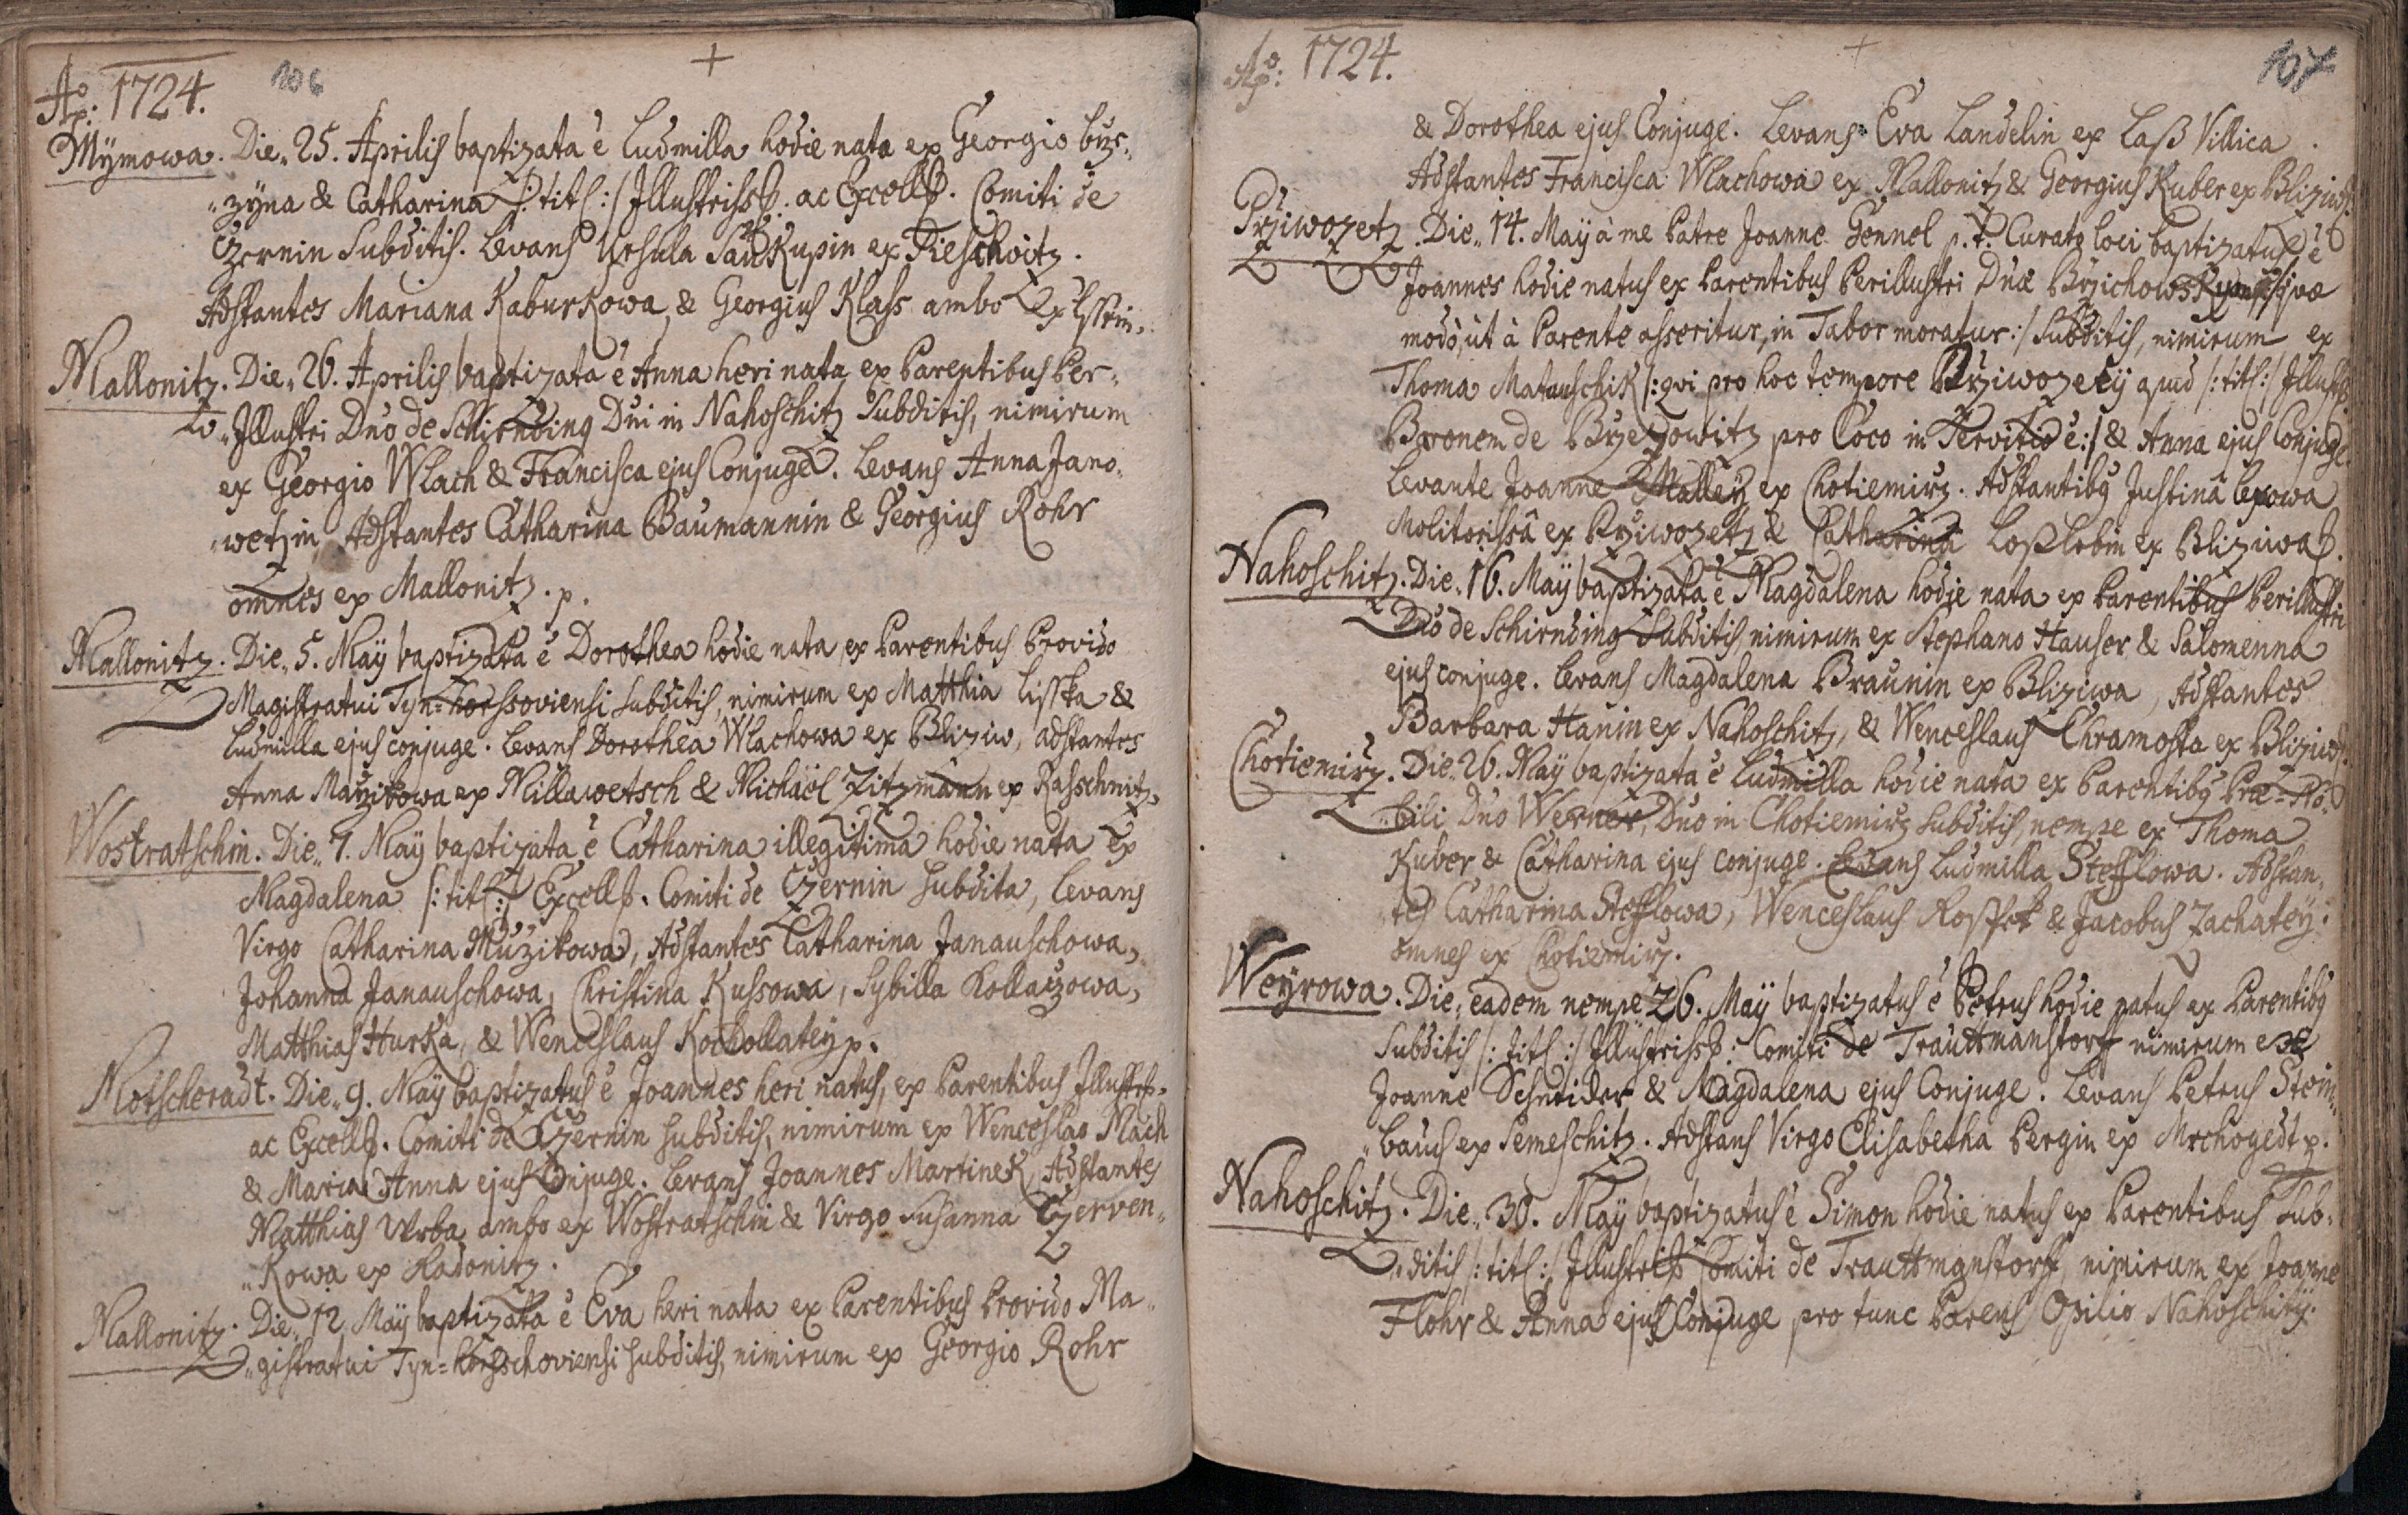 Aõ: 1724. 106
Mÿmowa. Die„ 25. Aprilis baptizata ê Ludmilla hodie nata ex Georgio
„zÿna & Catharina /: titl :/ Illustrissô. ac Excellô. Comiti de
Czernin Subditis. Levans Ursula ex
Adstantes Mariana Kaburkowa, & Georgius Klass ambo ex
Mallonitz. Die„ 26. Aprilis baptizata ê Anna heri nata ex Parentibus Per„
„Illustri Dño de Schirnding Dni in Nahoschitz Subditis, nimirum
ex Georgio Wlach & Francisca ejus Conjuge. Levans Anna Jano„
„wetzin Adstantes Catharina Baumannin & Georgius Rohr
omnes ex Mallonitz. p.
Mallonitz. Die„ 5. Maÿ baptizata ê Dorothea hodie nata, ex Parentibus Provido
Magistratui Tyn=horssoviensi subditis, nimirum ex Matthia Lisska &
Ludmilla ejus conjuge. Levans Dorothea Wlachowa ex Bliziw, adstantes
Anna ex Millawetsch & Michäel Zitzmann ex Raschnitz.
Wostratschin. Die„ 7. Maÿ baptizata ê Catharina illegitima hodie nata ex
Magdalena /: titl :/ Excellô. Comiti de Czernin subdita, Levans
Virgo Catharina Muzikowa, Adstantes Catharina Janauschowa,
Johanna Janauschowa, Christina Kussowa, Sybilla Kollaczowa,
Matthias Hurka, & Wenceslaus Kochollateÿ p.
Motscheradt. Die„ 9. Maÿ baptizatus ê Joannes heri natus, ex Parentibus Illustrô.
ac Excellô. Comiti de Czernin subditis, nimirum ex Wenceslao Mach
& Maria Anna ejus Conjuge. Levans Joannes Martinek, Adstantes
Matthias Wrba ambo ex Wostratschin & Virgo Susanna Czerven„
„kowa ex Radonitz.
Mallonitz. Die„ 12 Maÿ baptizata ê Eva heri nata ex Parentibus Provido Ma„
„gistratui Tyn=horschoviensi subditis, nimirum ex Georgio Rohr
Aõ: 1724. 107
& Dorothea ejus Conjuge. Levans Eva Landelin ex Laß Villica.
Adstantes Francisca Wlachowa ex Mallonitz & Georgius Kuber ex Bliziwa.
Przivozetz. Die„ 14. Maÿ à me Patre Joanne Gennel p. t. Curato loci baptizatus ê
Joannes hodie natus ex Parentibus Perillustri Dnæ
modò, ùt à Parente asseritur, in Tabor moratur :/ Subditis, nimirum ex
Thoma Matauschik /: qvi pro hoc tempore Przivozecÿ apud /: titl :/ Illustrô.
Baronem de Brzezowitz pro Coco in Servitio ê :/ & Anna ejus Conjuge.
Levante Joanne Malleÿ ex Chotiemirz. Adstantibg Justinâ
Molitorissâ ex Przivozetz & Catharina ex Bliziwa.
Nahoschitz. Die„ 16. Maÿ baptizata ê Magdalena hodie nata ex Parentibus Perillustri
Dño de Schirnding Subditis, nimirum ex Stephano Hauser & Salomenna
ejus conjuge. Levans Magdalena Braunin ex Bliziwa, Adstantes
Barbara Hanin ex Nahoschitz, & Wenceslaus Chramosta ex Bliziwa.
Chotiemirz. Die„ 26. Maÿ baptizata ê Ludmilla hodie nata ex Parentibg Præ=No„
„bili Dño Werner, Dño in Chotiemirz subditis, nempe ex Thoma
Kuber & Catharina ejus conjuge. Levans Ludmilla Stefflowa. Adstan„
„tes Catharina Stefflowa, Wenceslaus & Jacobus Zachateÿ.
omnes ex Chotiemirz.
Weÿrowa. Die„ eadem nempe 26. Maÿ baptizatus ê Petrus hodie natus ex Parentibg
Subditis /: titl :/ Illustrissô: Comiti de Trauttmanstorff nimirum ex
Joanne Schneider & Magdalena ejus Conjuge. Levans Petrus Stein„
„baus ex Semeschitz. Adstans Virgo Elisabetha Pergin ex Mrchogedt p.
Nahoschitz. Die„ 30. Maÿ baptizatus ê Simon hodie natus ex Parentibus Sub„
„ditis /: titl :/ Illustriô Comiti de Trauttmanstorff, nimirum ex Joanne
Flohr & Anna ejus Conjuge pro tunc Parens Opilio Nahoschitÿ.